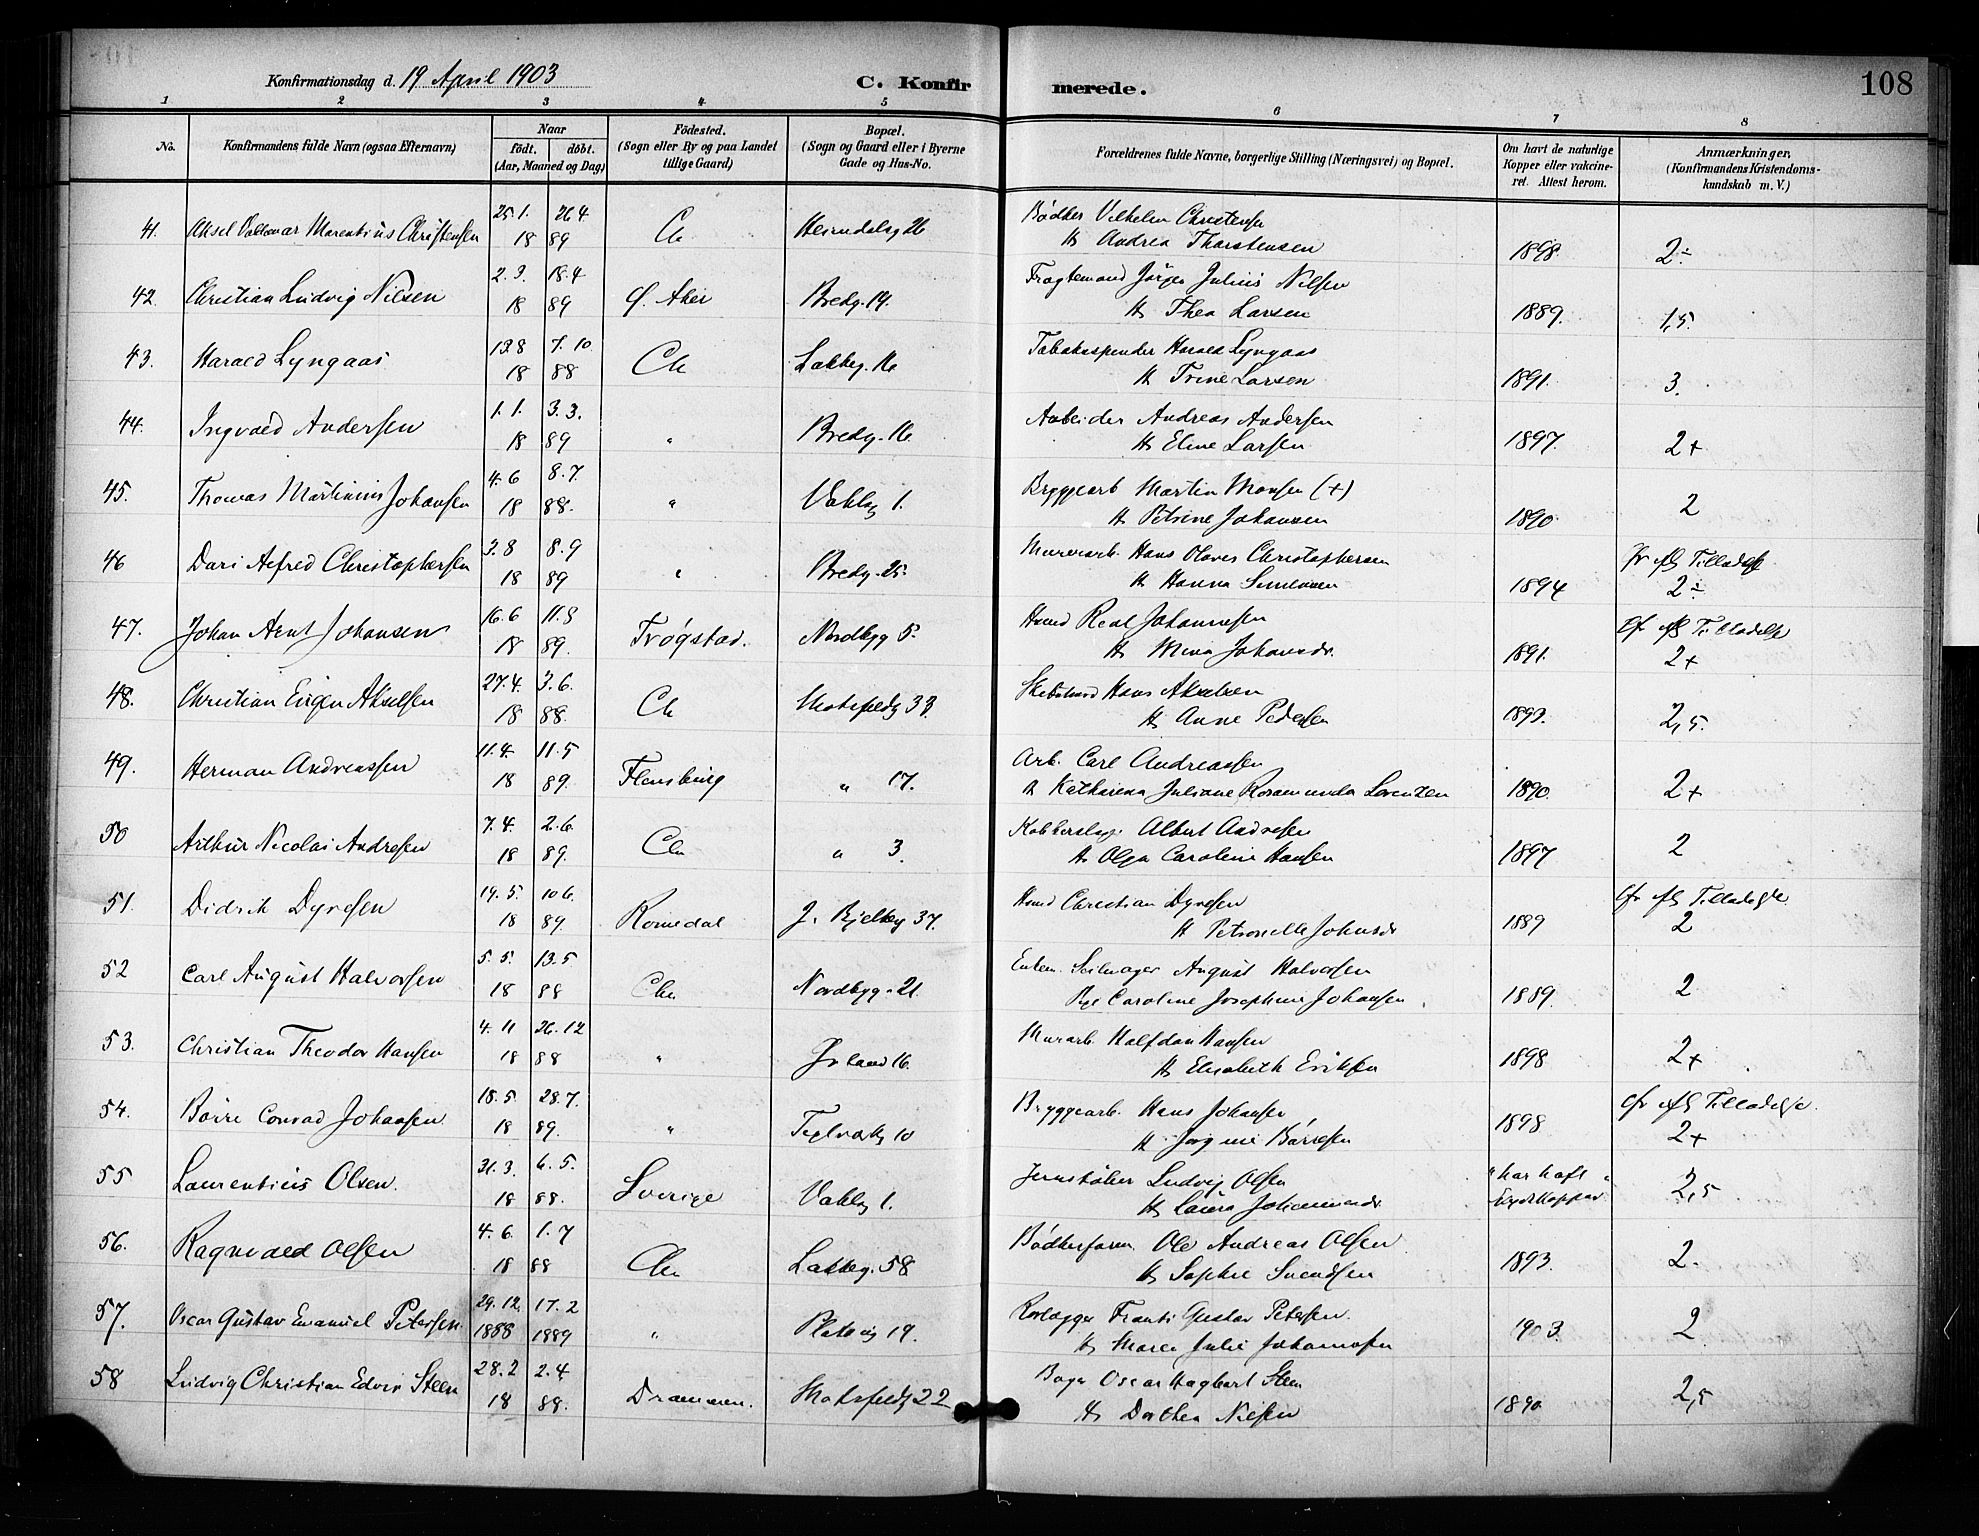 Konfirmationsdag d. 19 April 1903 C. Konfir merede. 108
1 2 3 4 5 6 7 8
No. Konfirmandens fulde Navn (ogsaa Efternavn) Naar födt. döbt. (Aar, Maaned og Dag) Födested. (Sogn eller By og paa Landet tillige Gaard) Bopæl. (Sogn og Gaard eller i Byerne Gade og Hus-No. Forældrenes fulde Navne, borgerlige Stilling (Næringsvei) og Bopæl. Om havt de naturlige Kopper eller vakcineret. Attest herom. Anmærkninger, (Konfirmandens Kristendomskundskab m. V.)
41. Aksel Valdemar Marentius Christensen 25.1. 26.4 Ch Heimdalsg 26 Bødker Vilhelm Christensen
18 89 H Andrea Thorstensen 1898. 2÷
42. Christian Ludvig Nilsen 2.3. 18.4 Ø. Aker Bredg. 14. Fragtemand Jørgen Julius Nilsen
18 89 H Thea Larsen 1889. 1,5.
43. Harald Lyngaas 13.8 7.10. Ch Lakkeg. 16 Tobakspinder Harald Lyngaas
18 88 H Trine Larsen 1891. 3.
44. Ingvald Andersen 1.1. 3.3. " Bredg. 16 Arbeider Andreas Andersen
18 89 H Eline Larsen 1897. 2+
45. Thomas Martinius Johansen 4.6 8.7. " Vahlsg 1. Bryggearb Martin Monsen (+)
18 88. H Petrine Johansen 1890. 2
46 Dari Alfred Christophersen 3.8 8.9 " Bredg. 25. Murerarb. Hans Olaves Christophersen
18 89 H Hanna Simensen 1894 Tilladelse 2÷
47. Johan Arnt Johansen 16.6 11.8 Trøgstad. Nordbyg 5. Johannesen
18 89. H Mina Johansdr. 1891. Tilladelse 2+
48. Christian Eugen Akselsen 27.4. 3.6. Ch Motzfeldtsg 33. Hans Akselsen
18 88. H Anne Pedersen 1893. 2,5.
49. Herman Andreassen 11.4. 11.5 Flensburg " 17. Arb. Carl Andreassen
18 89. H Katharina Juliane Rosamunda Lorenzen 1890. 2+
50 Arthur Nicolai Andresen 7.4. 2.6. Cha " 3. Kobberslager Albert Andresen
18 89. H Olga Caroline Hansen 1897 2
51. Didrik Dyresen 19.5. 10.6. Romedal J. Bjelkeg 37. Christian Dyresen
18 89. H Petronelle Johnsdr 1889 Tilladelse 2
52 Carl August Halvorsen 5.5. 13.5 Cha Nordbyg. 21. Enkem. Seilmager August Halvorsen
18 88 Pige Caroline Josephine Johansen 1889. 2
53. Christian Theodor Hansen 4.11 26.12 " Grønland 16. Murarb. Halfdan Hansen
18 88 H Elisabeth Eriksen 1898 2+
54. Børre Conrad Johansen. 18.5. 28.7. " Teglverksg 10 Bryggearb. Hans Johansen
18 89. H Jørgine Børresen 1898 Tilladelse. 2+
55 Laurentius Olsen. 31.3. 6.5. Sverige Vahlsg 1. Jernstøber Ludvig Olsen "har haft
18 88. H Laura Johannesdr. 2,5
56. Ragnvald Olsen 4.6. 1.7 Cha Lakkeg. 58 Bødkerform. Ole Andreas Olsen
18 88 H Sophie Svendsen 1893. 2.
57. Oscar Gustav Emanuel Petersen. 29.12. 17.2 " Platousg 19. Rørlægger Frants Gustav Petersen.
1888 1889 H Maren Julie Johannesen 1903. 2
58 Ludvig Christian Edvin Steen 28.2 2.4 Drammen. Motzfeldtsg 22 Bager Oscar Hagbart Steen
18 88. H Dorthea Nilsen 1890 2,5